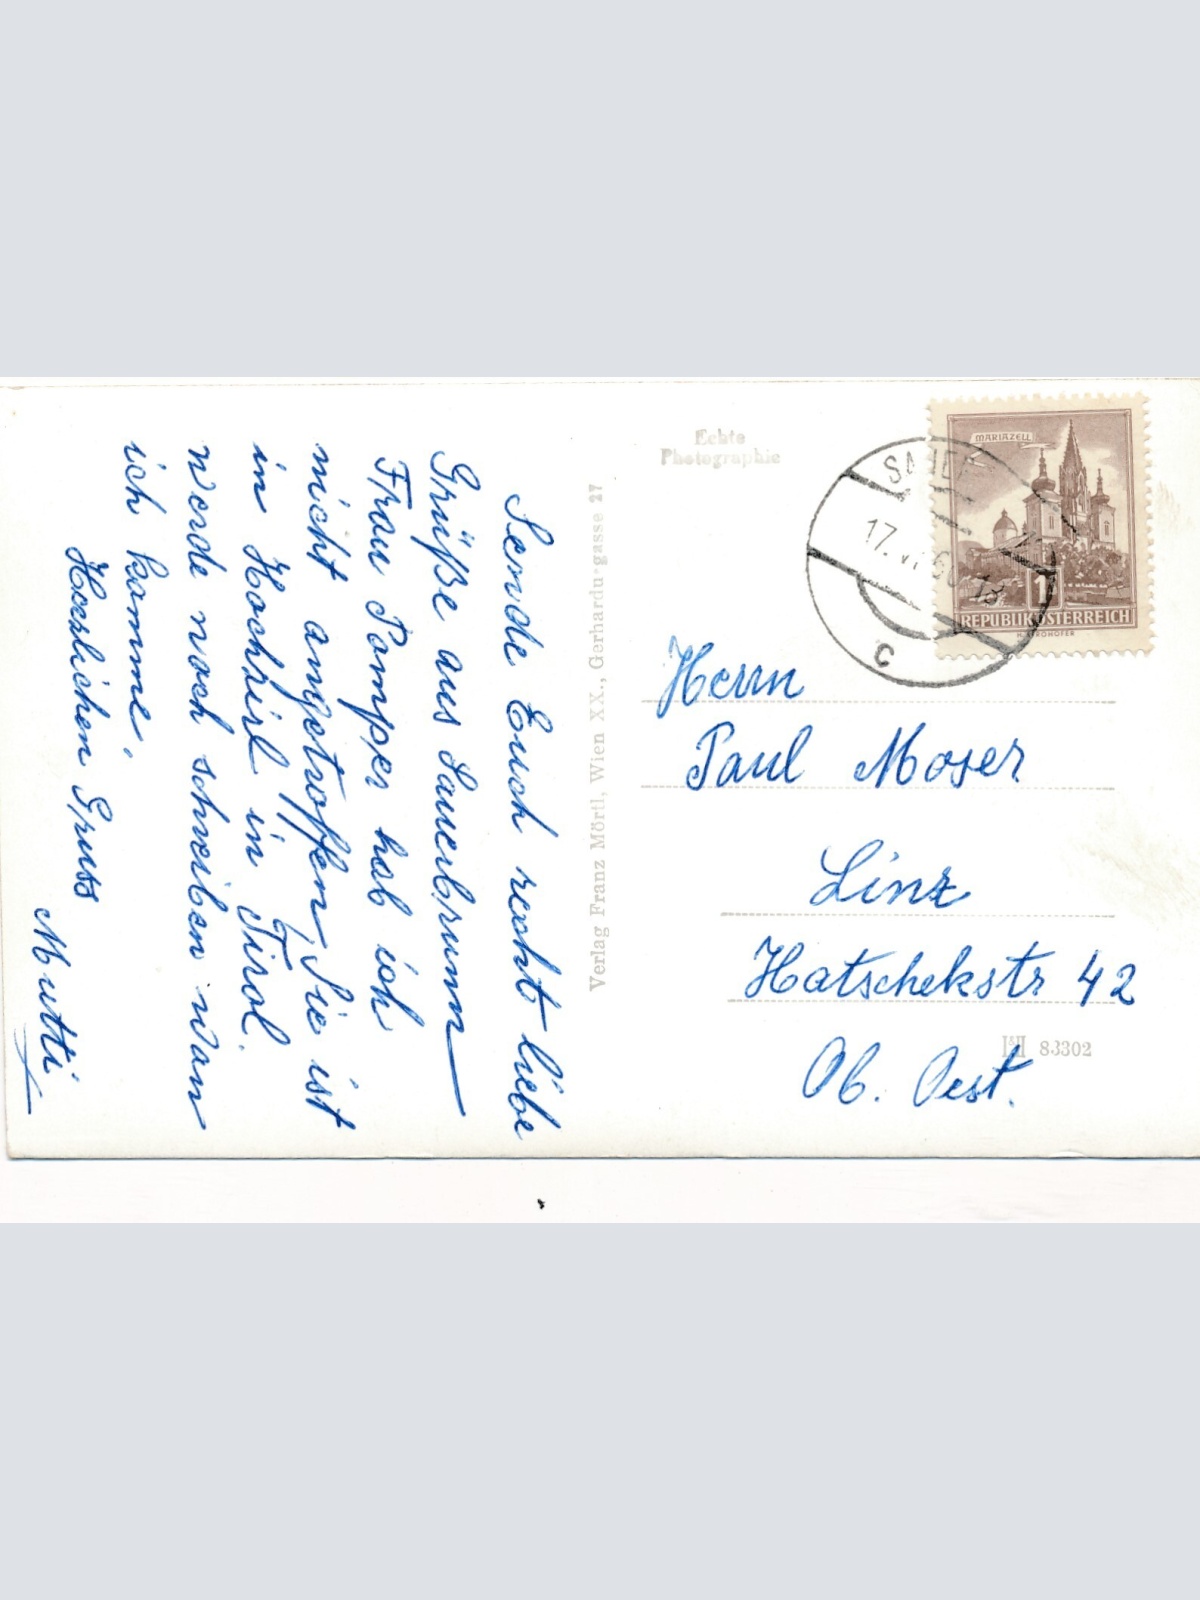 Sende Euch recht liebe
Grüße aus Sauerbrunn
Frau Pamper hab ich
nicht angetroffen, Sie ist
in Hochzirl in Tirol.
werde noch schreiben wan
ich komme.
Herzlichen Gruss
Mutti
Verlag Franz Mörtl, Wien XX., Gerhardusgasse 27
Echte
Photographie
MARIAZELL
1
REPUBLIK ÖSTERREICH
17. VI. 60 13
c
Herrn
Paul Moser
Linz
Hatschekstr 42
83302
Ob. Oest.